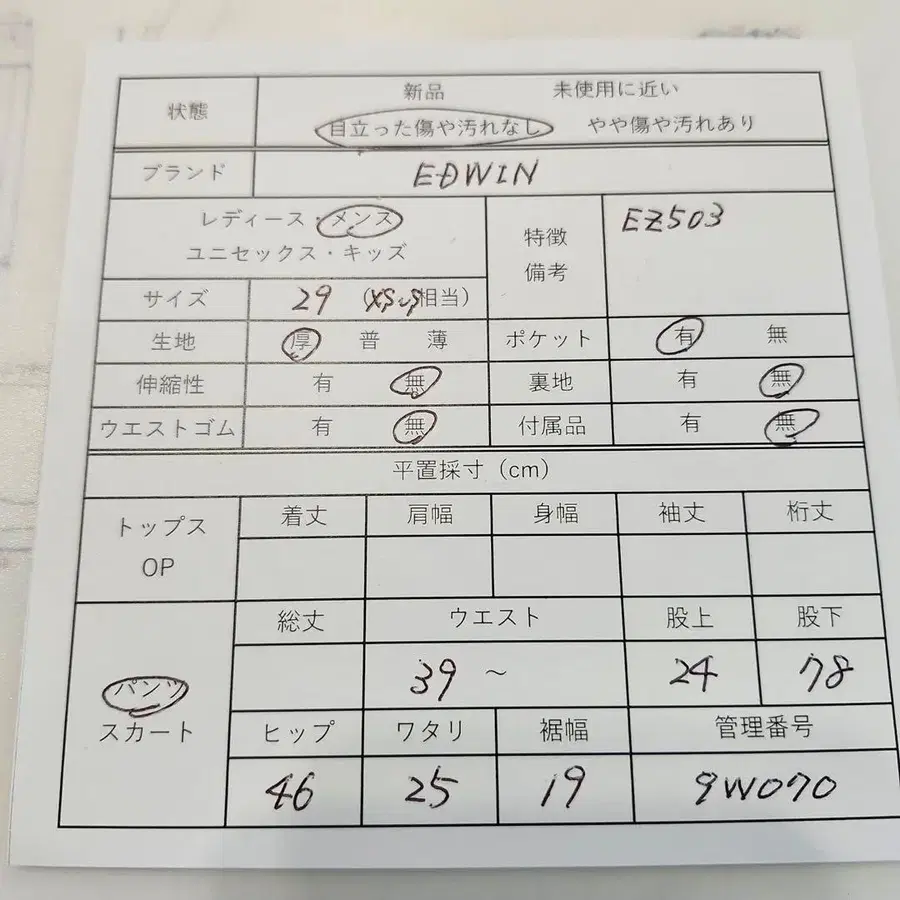 状態 新品 未使用に近い
目立った傷や汚れなし やや傷や汚れあり
ブランド EDWIN
レディース・メンズ
ユニセックス・キッズ
特徴
備考
EZ503
サイズ 29 (XS〜S相当)
生地 厚 普 薄 ポケット 有 無
伸縮性 有 無 裏地 有 無
ウエストゴム 有 無 付属品 有 無
平置採寸（cm）
トップス
OP
着丈 肩幅 身幅 袖丈 裄丈
パンツ
スカート
総丈 ウエスト 股上 股下
39 ~ 24 78
ヒップ ワタリ 裾幅 管理番号
46 25 19 9W070